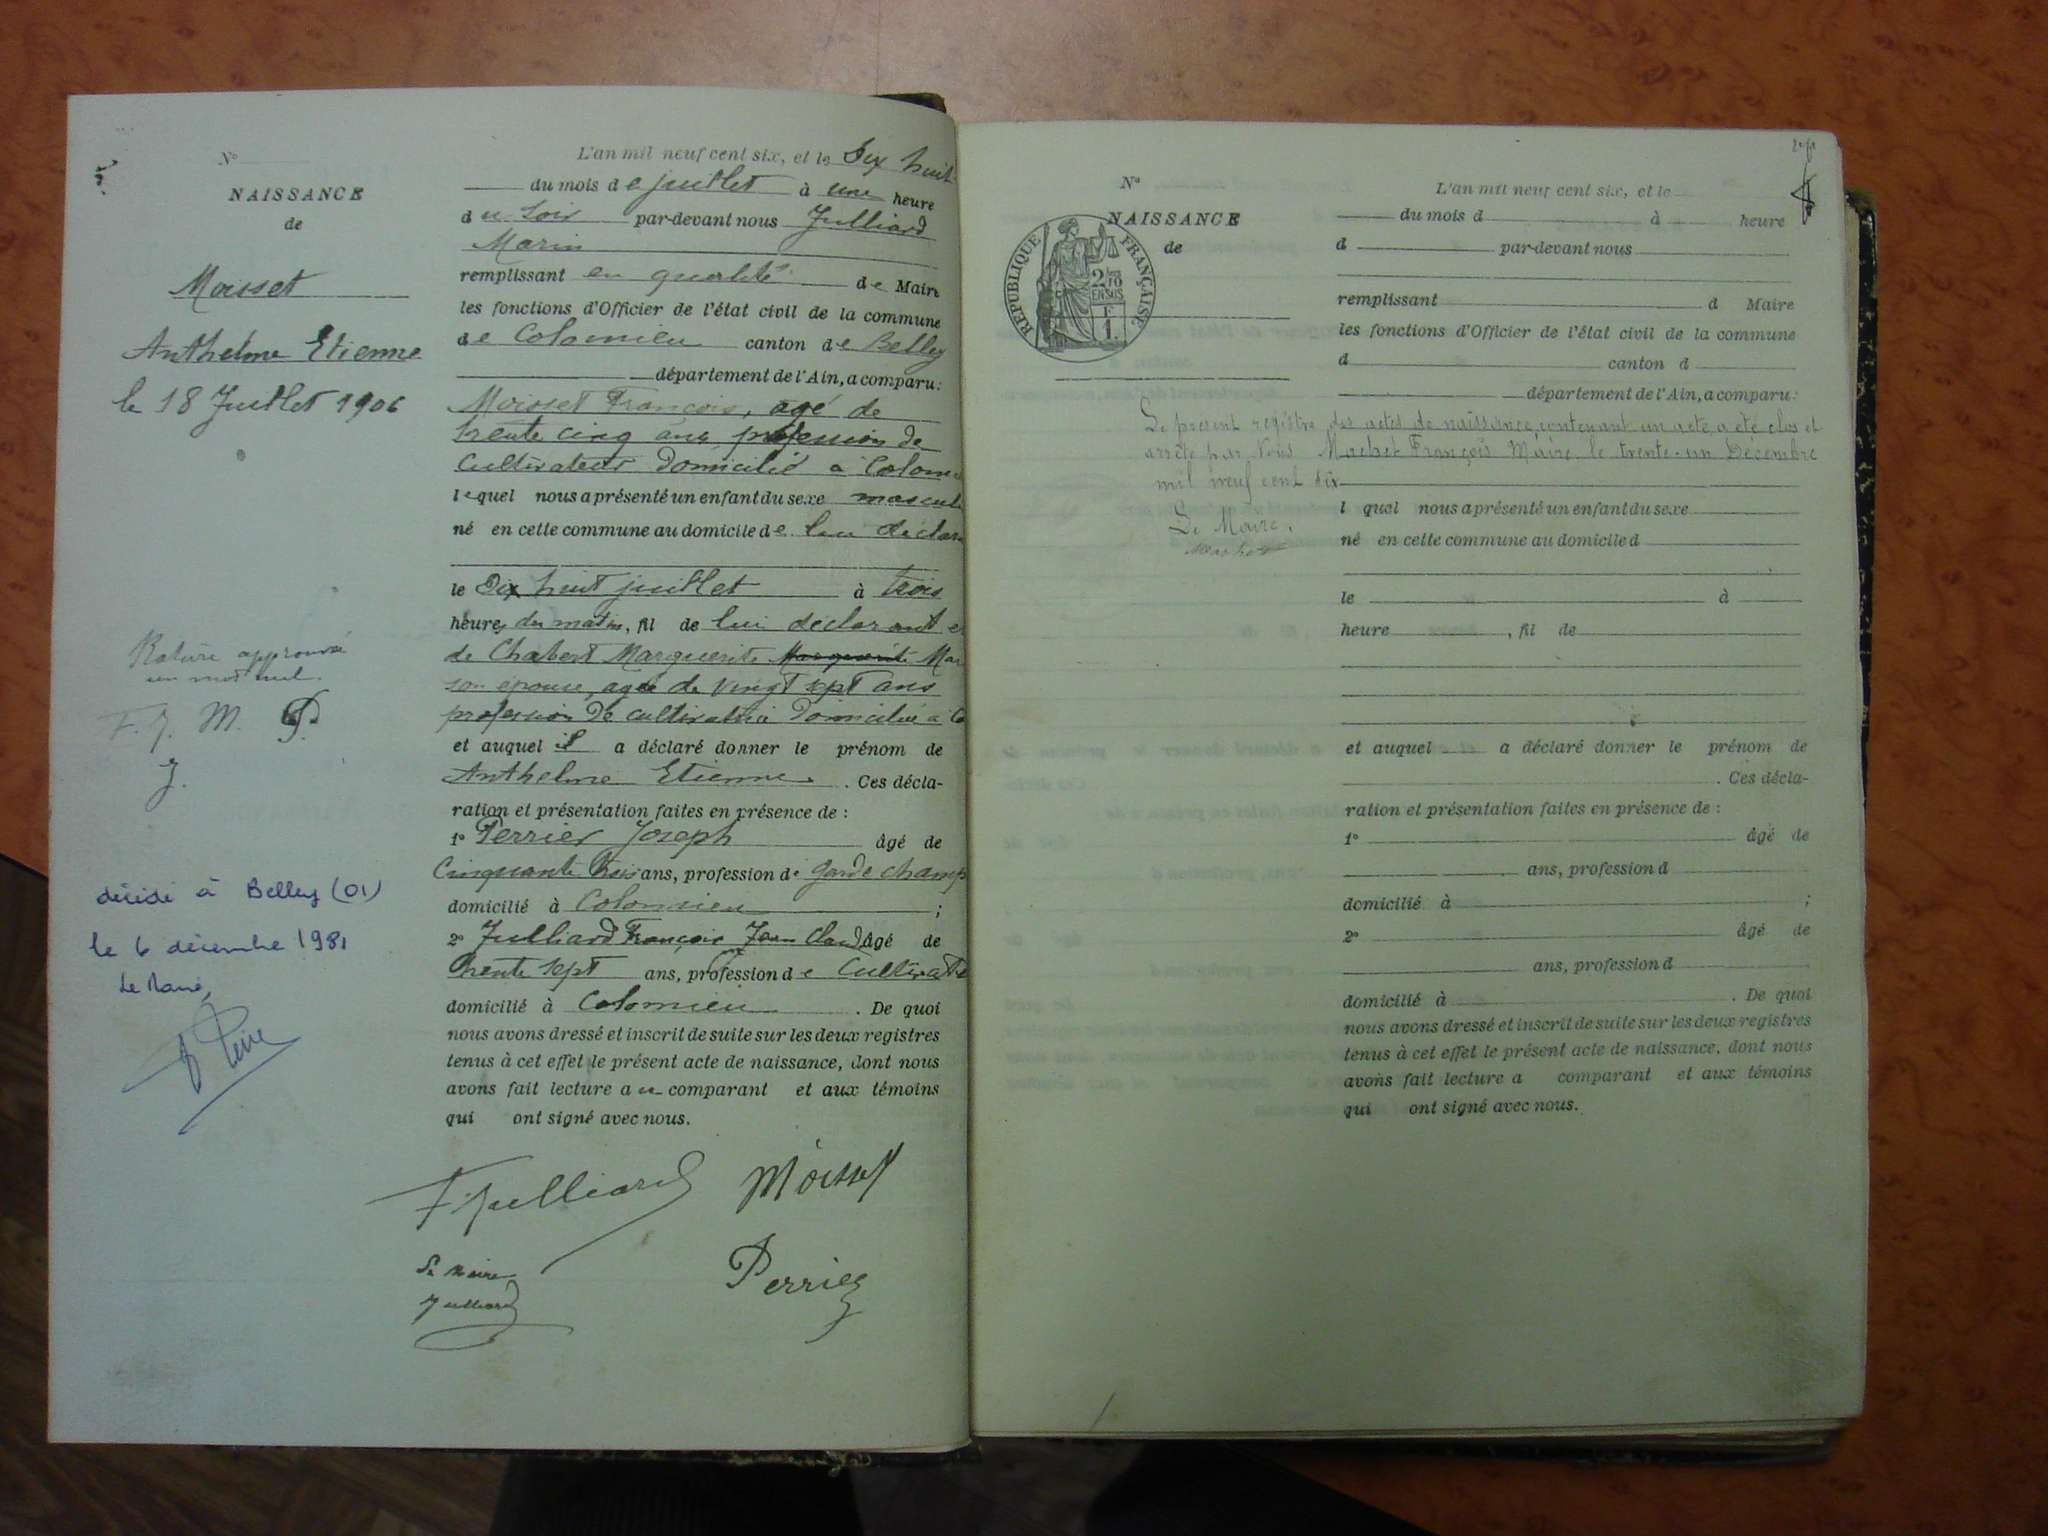 N°
NAISSANCE
de
Moisset
Anthelme Etienne
le 18 Juillet 1906
Rature approuvé
un mot nul.
F. J. M. P.
J.
décédé à Belley (01)
le 6 décembre 1981
Le Maire,
L'an mil neuf cent six, et le Dix huit
du mois de juillet à une heure
du soir par-devant nous Julliard
Marin
remplissant en qualité de Maire
les fonctions d'Officier de l'état civil de la commune
de Colomieu canton de Belley
département de l'Ain, a comparu:
Moisset François, agé de
trente cinq ans profession de
Cultivateur Domicilié a Colom
lequel nous a présenté un enfant du sexe mascul
né en cette commune au domicile de lui déclar
le Dix huit juillet à trois
heures du matin, fil de lui déclarant e
de Chabert Marguerite Marguerite Mar
son épouse, agée de vingt sept ans
profession de cultivatrice domiciliée à Co
et auquel il a déclaré donner le prénom de
Anthelme Etienne. Ces décla-
ration et présentation faites en présence de :
1° Perrier Joseph âgé de
Cinquante trois ans, profession de garde champ
domicilié à Colomieu ;
2° Julliard François Jean Claud âgé de
trente sept ans, profession de Cultivate
domicilié à Colomieu . De quoi
nous avons dressé et inscrit de suite sur les deux registres
tenus à cet effet le présent acte de naissance, dont nous
avons fait lecture au comparant et aux témoins
qui ont signé avec nous.
F. Julliard Moisset
Le Maire
Julliard
Perrier
N°
NAISSANCE
de
RÉPUBLIQUE FRANÇAISE
2/10
EN SUS
1F
L'an mil neuf cent six, et le
du mois d à heure
d par-devant nous
remplissant d Maire
les fonctions d'Officier de l'état civil de la commune
d canton d
département de l'Ain, a comparu:
Le présent registre des actes de naissance, contenant un acte, a été clos et
arrêté par Nous Machet François Maire le trente-un Décembre
mil neuf cent six
Le Maire.
l quel nous a présenté un enfant du sexe
né en cette commune au domicile d
le à
heure , fil de
et auquel a déclaré donner le prénom de
. Ces décla-
ration et présentation faites en présence de :
1° âgé de
ans, profession d
domicilié à ;
2° âgé de
ans, profession d
domicilié à . De quoi
nous avons dressé et inscrit de suite sur les deux registres
tenus à cet effet le présent acte de naissance, dont nous
avons fait lecture a comparant et aux témoins
qui ont signé avec nous.